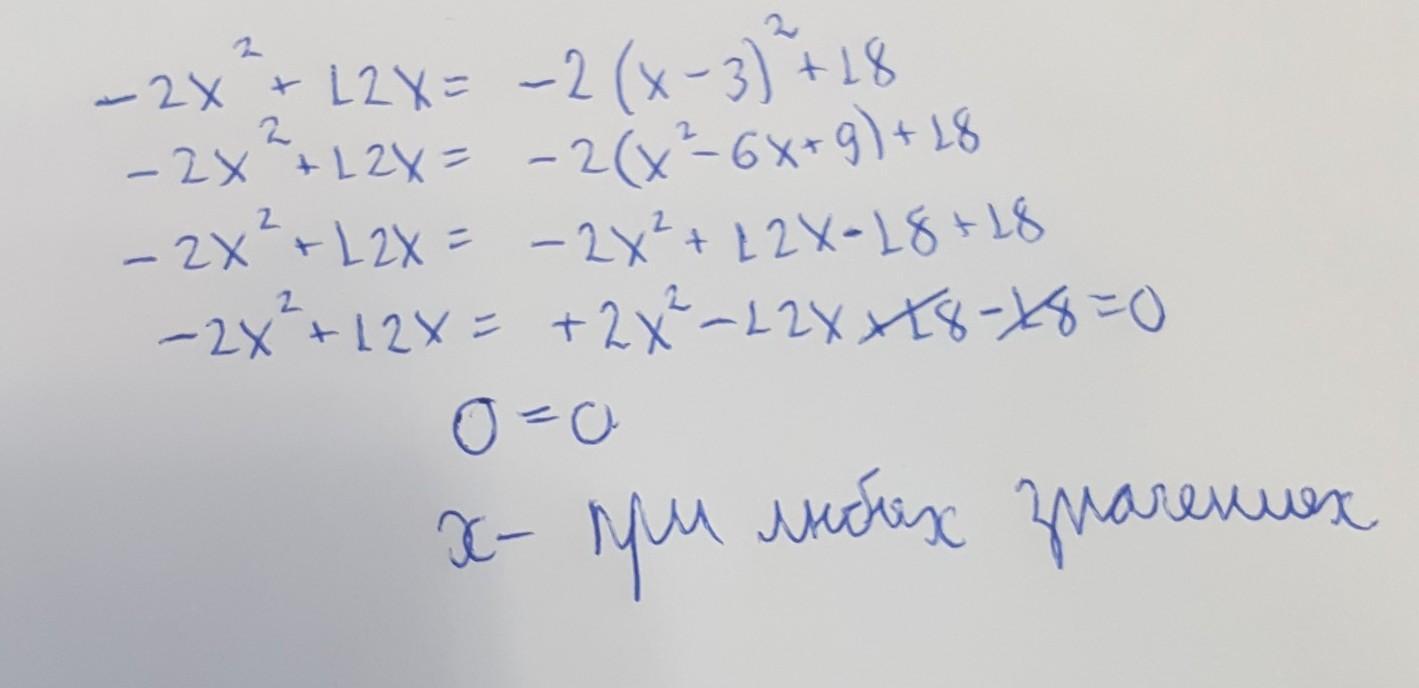 -2x² + 12x = -2(x-3)² + 18
-2x² + 12x = -2(x² - 6x + 9) + 18
-2x² + 12x = -2x² + 12x - 18 + 18
-2x² + 12x = +2x² - 12x + 18 - 18 = 0
0 = 0
x - при любых значениях